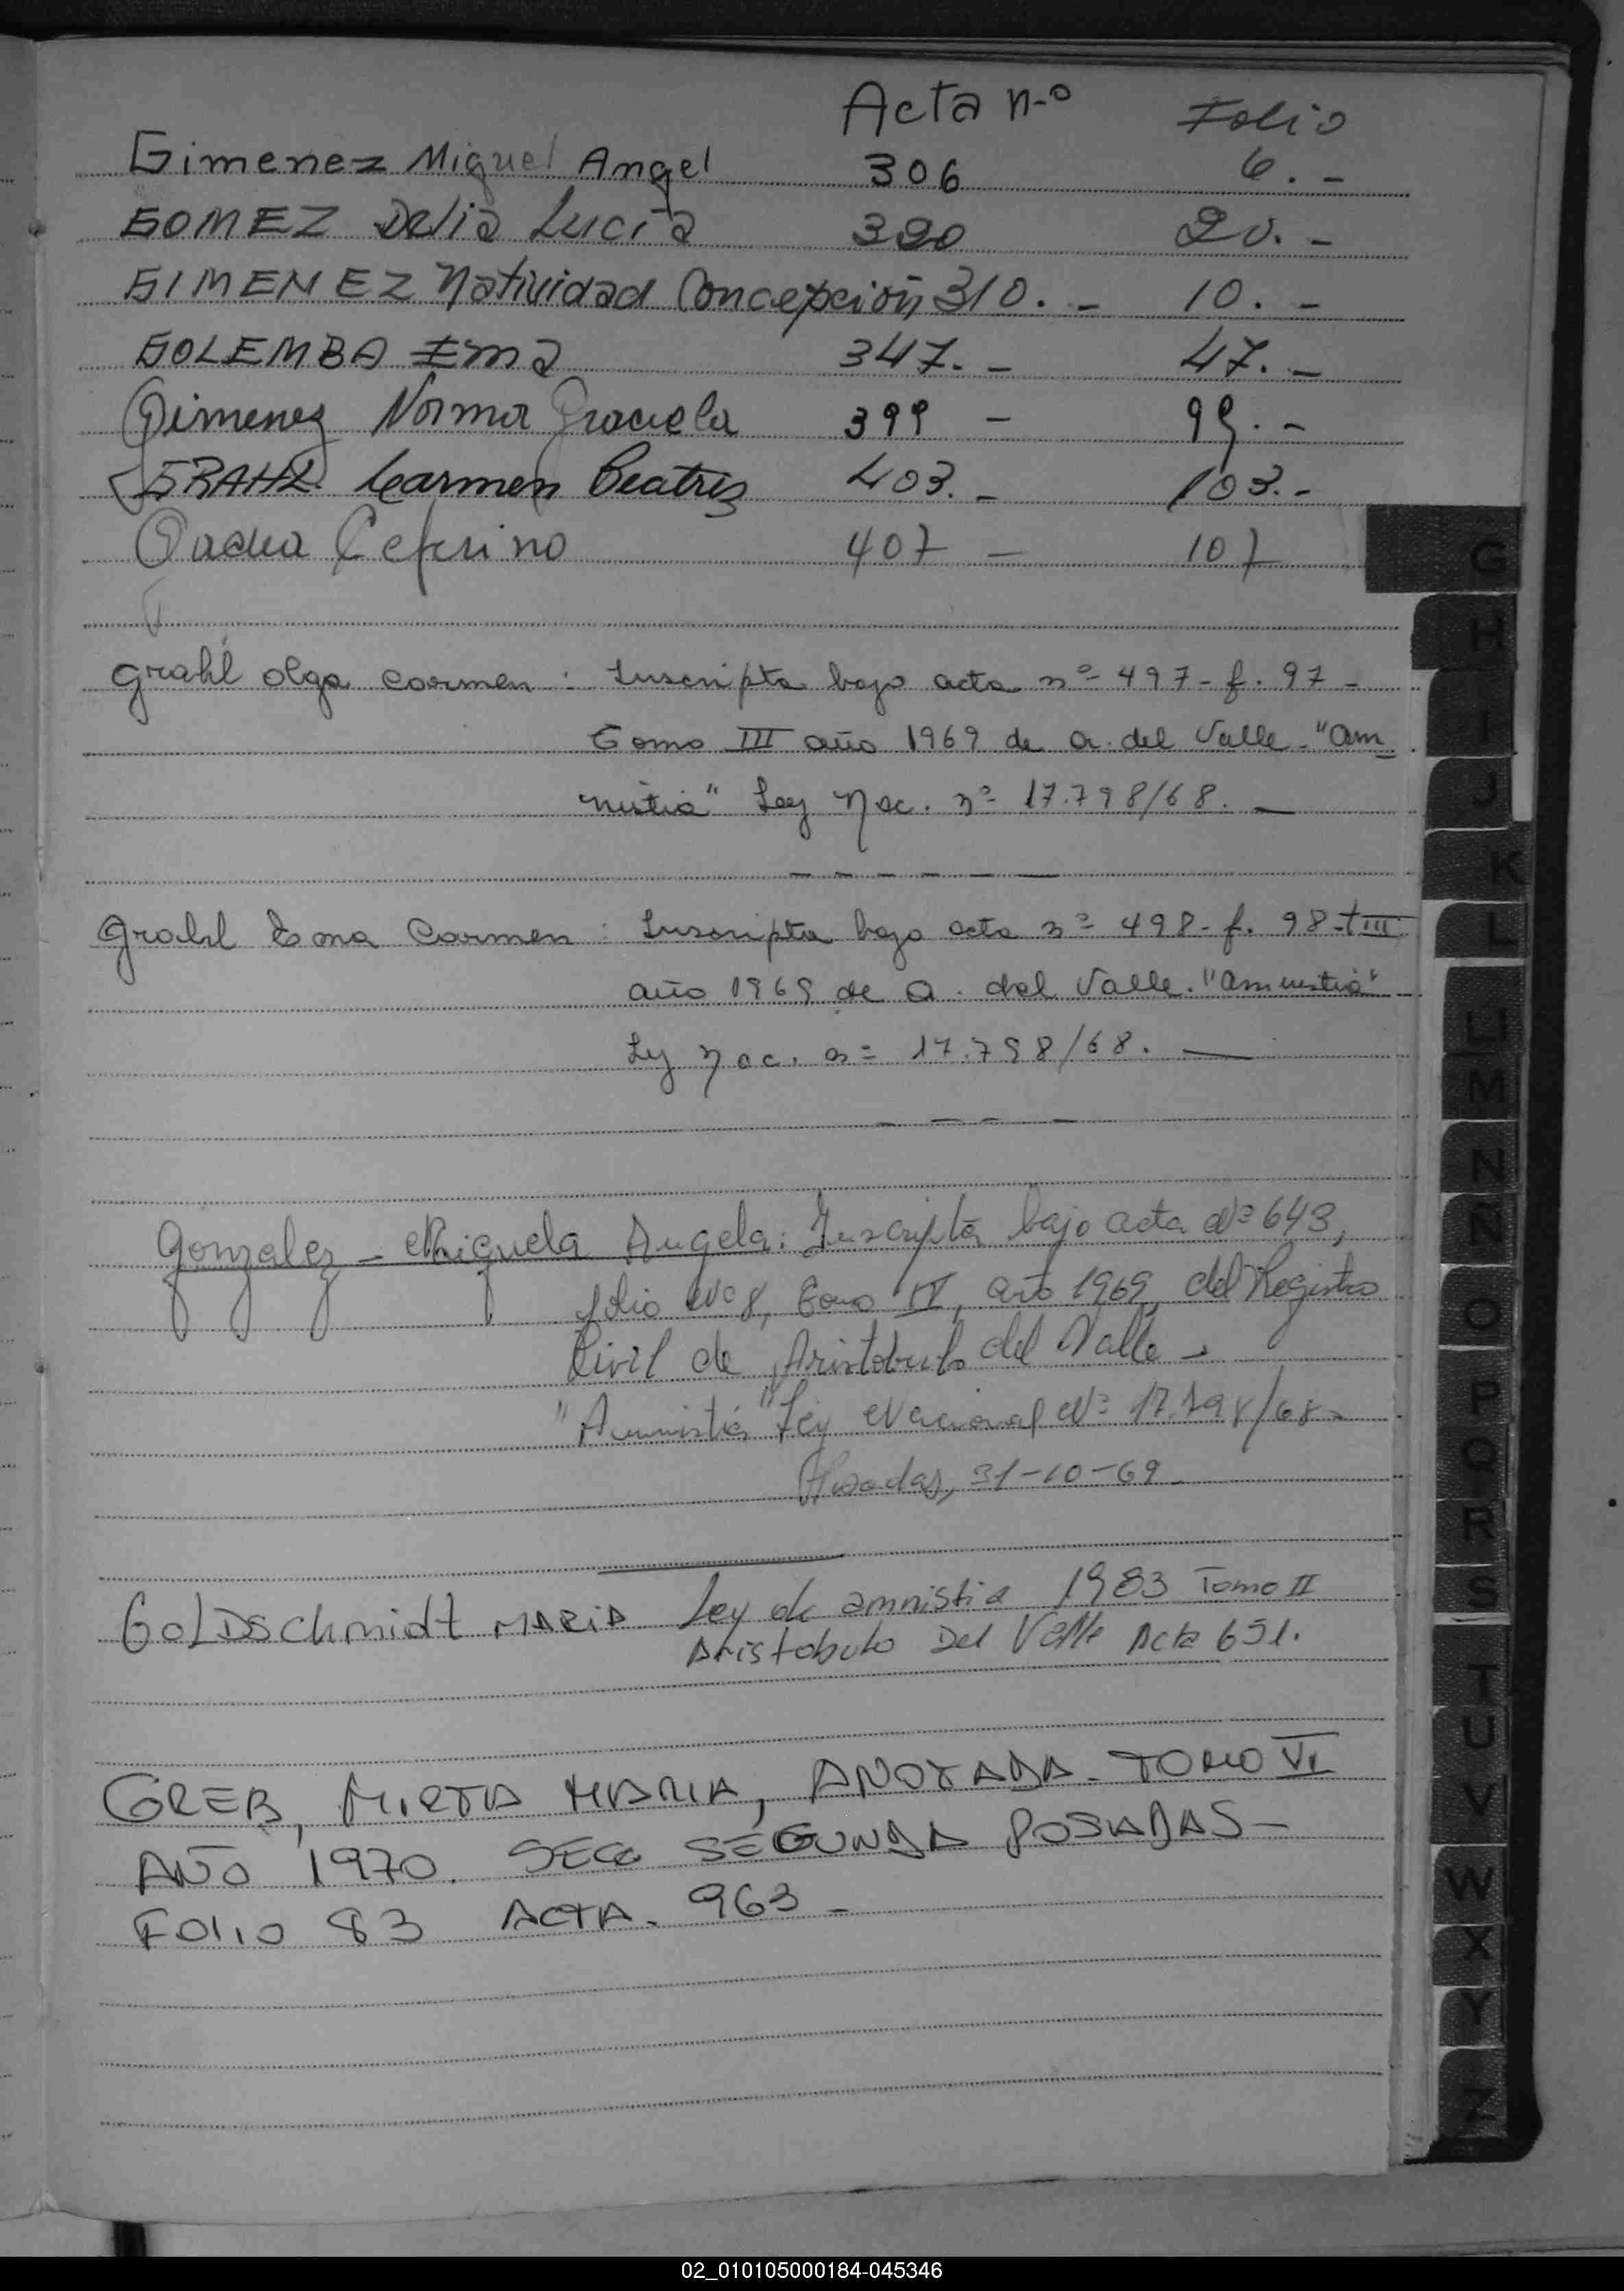 Acta n-º Folio
Gimenez Miguel Angel 306 6. -
GOMEZ Delia Lucía 320 20. -
GIMENEZ Natividad Concepción 310. - 10. -
GOLEMBA Ema 347. - 47. -
Gimenez Norma Graciela 399 - 99. -
GRAHL Carmen Beatriz 403. - 103. -
Ceferino 407 - 107
Grahl Olga Carmen : Inscripta bajo acta nº 497 - f. 97 -
Tomo III año 1969 de A. del Valle - "Am
nistia" Ley Nac. nº 17.798/68. —
Grahl Ema Carmen : Inscripta bajo acta nº 498 - f. 98 - t III
año 1969 de A. del Valle. "Amnistia"
Ley Nac. nº 17.798/68. —
Gonzalez - Miguela Angela: Inscripta bajo acta Nº 643,
folio Nº 8, Tomo IV, año 1969, del Registro
Civil de Aristobulo del Valle -
"Amnistía" Ley Nacional Nº 17.798/68 -
Posadas, 31-10-69 -
GoLDSchmidt MARIA Ley de amnistia 1983 Tomo II
Aristobulo Del Valle Acta 651.
GREB, MIRTA MARIA, ANOTADA - TOMO VI
AÑO 1970. SECC SEGUNDA POSADAS -
FOLIO 83 ACTA. 963 -
G
H
I
J
K
L
LL
M
N
Ñ
O
P
Q
R
S
T
U
V
W
X
Y
Z
02_010105000184-045346